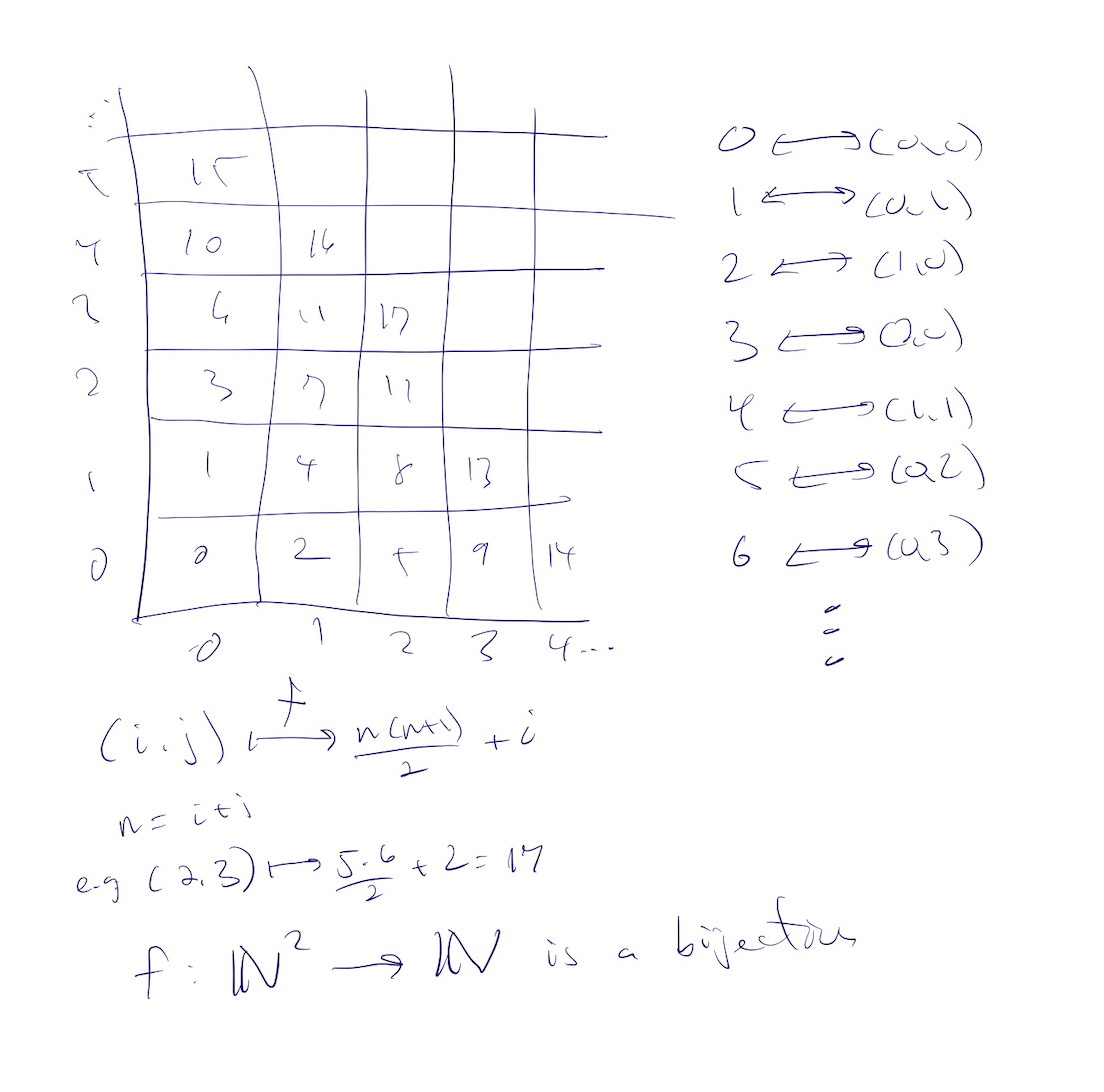 5 15
4 10 16
3 6 11 17
2 3 7 11
1 1 4 8 13
0 0 2 5 9 14
0 1 2 3 4...
0 ⟷ (0,0)
1 ⟷ (0,1)
2 ⟷ (1,0)
3 ⟷ 0,0)
4 ⟷ (1,1)
5 ⟷ (0,2)
6 ⟷ (0,3)
⋮
(i,j) ↦ᶠ n(n+1)/2 + i
n = i+j
e.g (2,3) ↦ 5·6/2 + 2 = 17
f : ℕ² → ℕ is a bijection